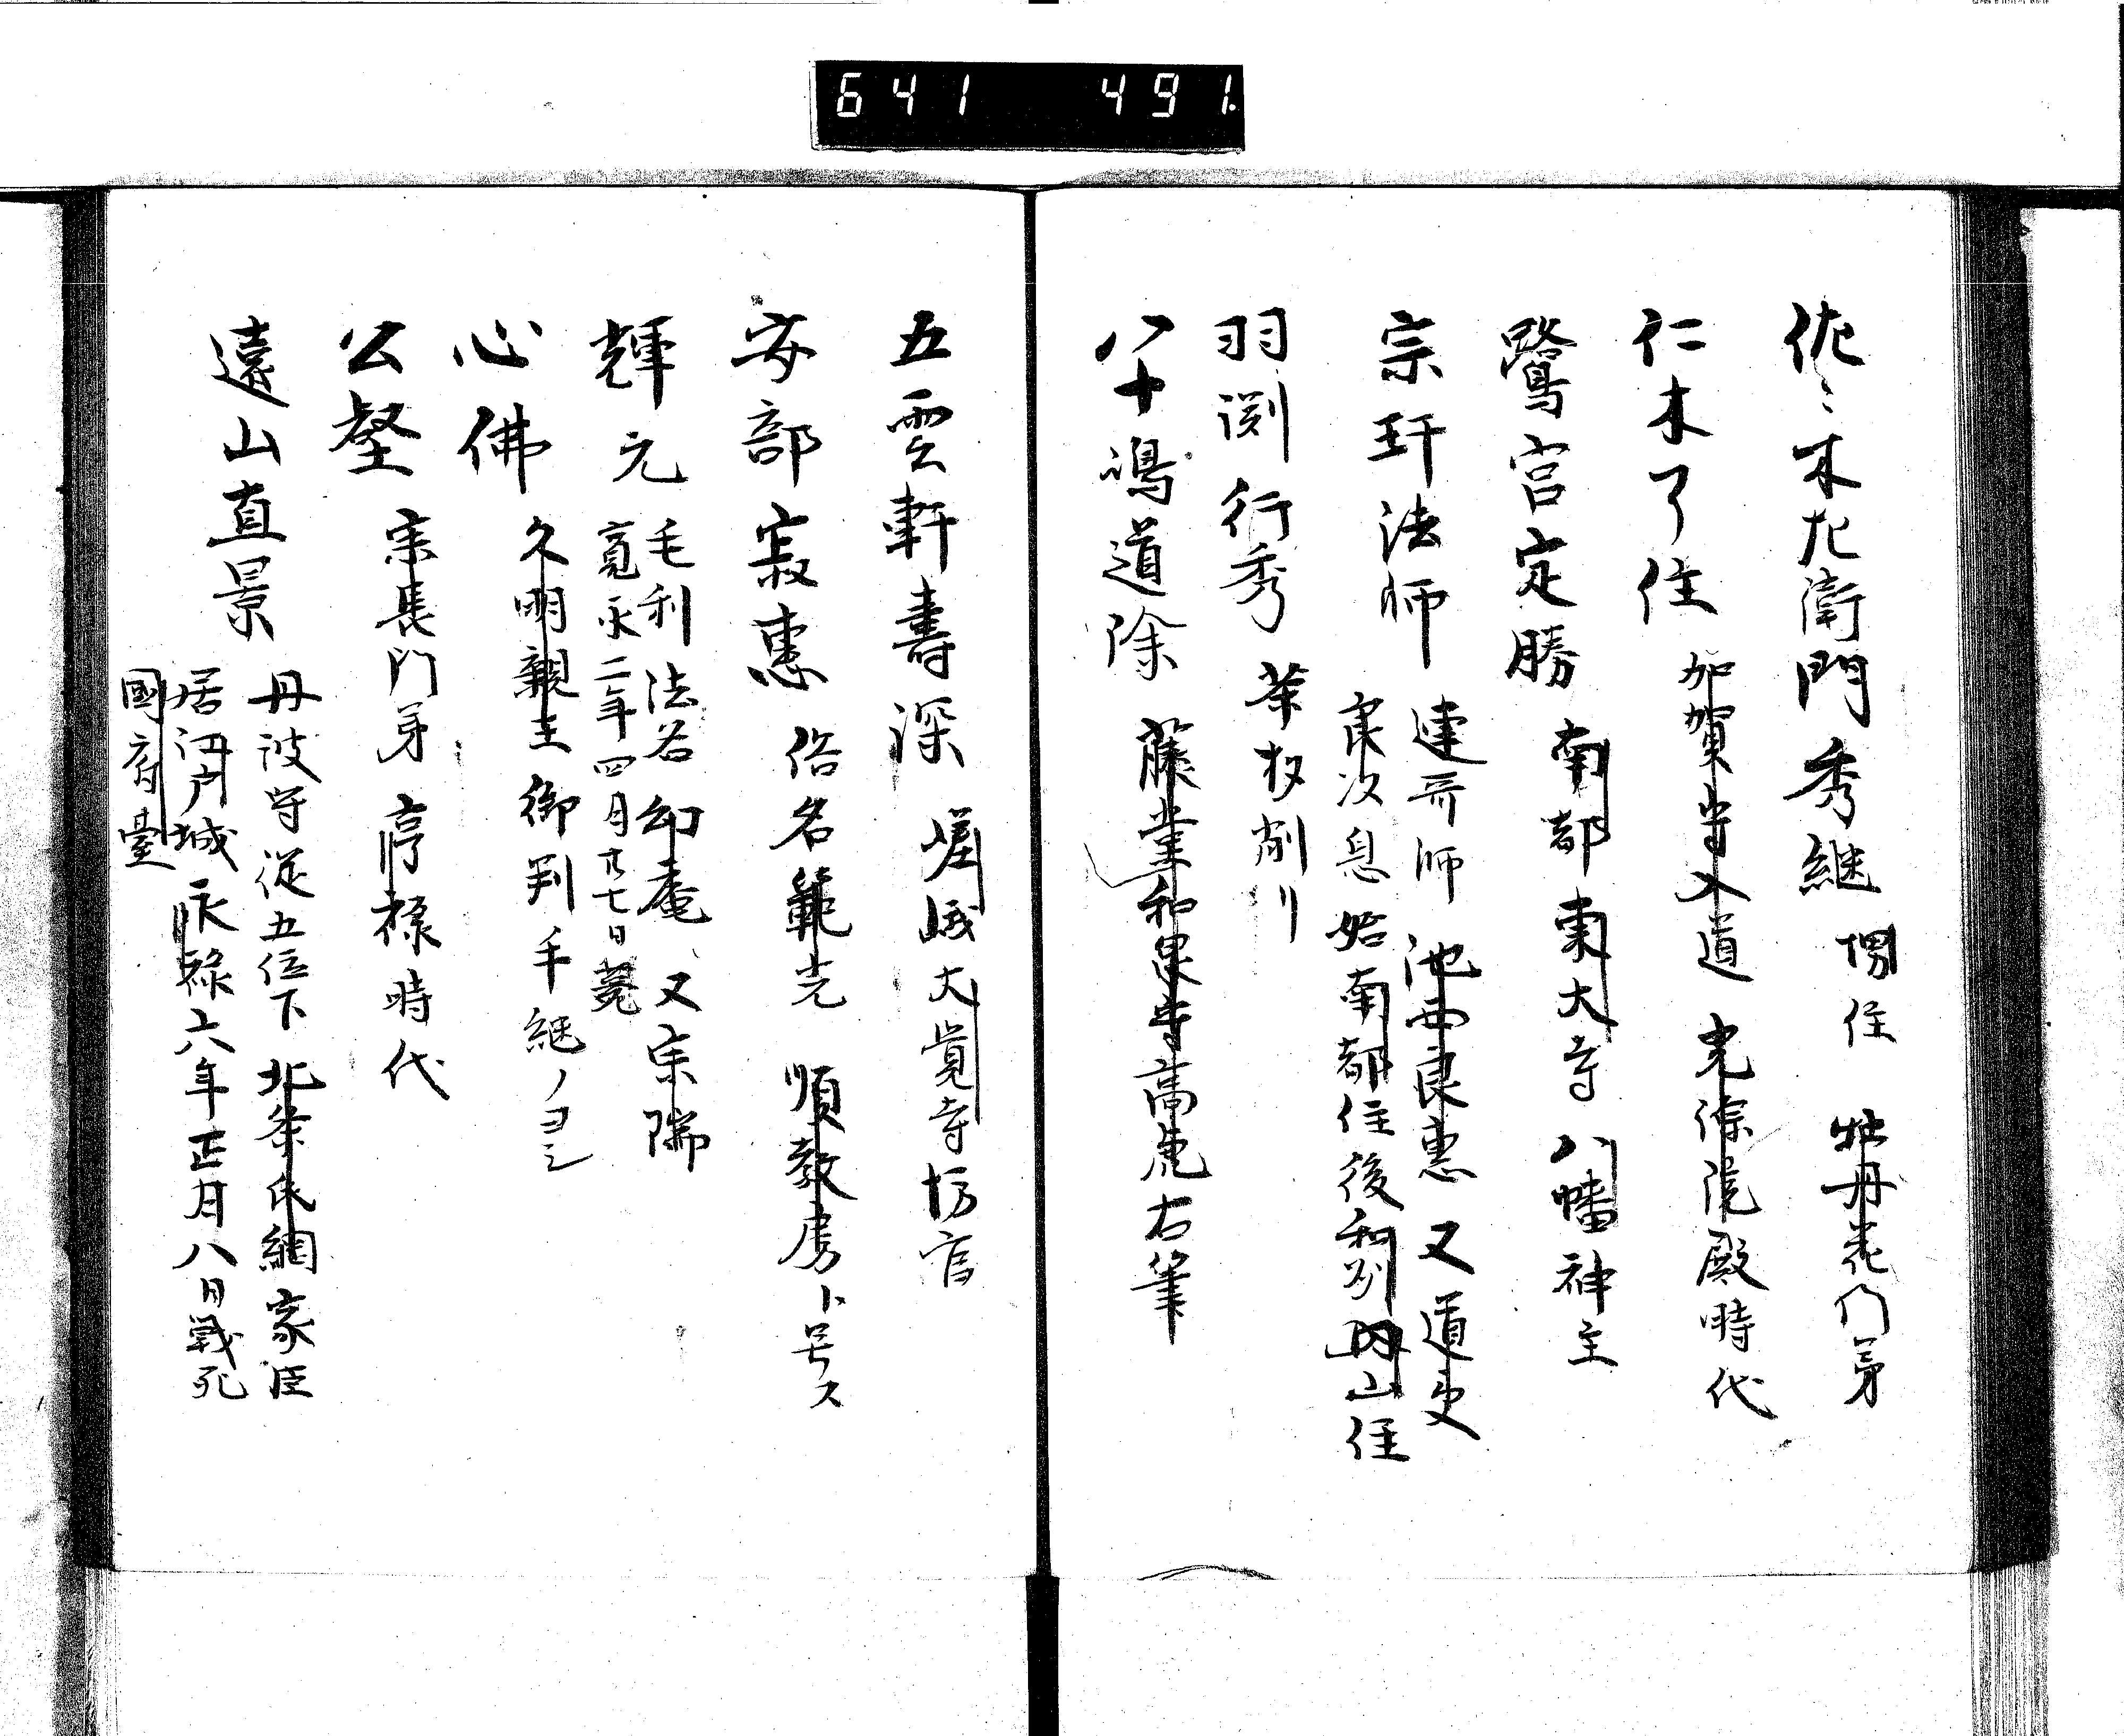 641 491
佐々木尤衛門秀継 堺住 牡丹花門弟
仁木了住 加賀守入道 常徳院殿時代
鷺宮定勝 南都東大寺八幡神主
宗玕法師 連哥師 池西良恵 又道史
良次息 始南都住後和刕内山住
羽渕行秀 茶杓削リ
八十嶋道除 藤堂和泉守高虎右筆
五雲軒壽深 嵯峨大覚寺坊官
安部寂恵 俗名範元 順教房ト号ス
輝元 毛利法名幻庵 又宗瑞
寛永二年四月廿七日薨
心佛 久明親王御判手継ノヨシ
公壑 宗長門弟 享禄時代
遠山直景 丹波守従五位下 北条氏綱家臣
居江戸城 永禄六年正月八日戦死
國府臺